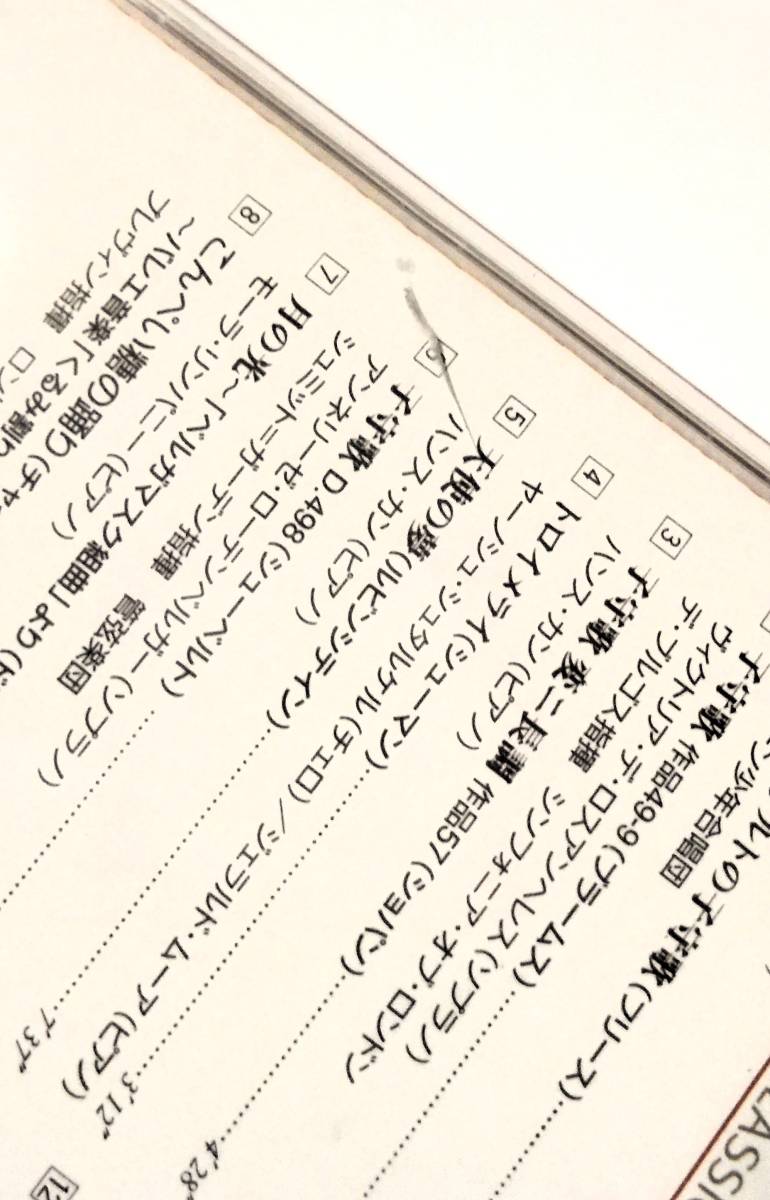 ルトの子守歌(フリース)
ン少年合唱団
子守歌 作品49-9(ブラームス)
ヴィクトリア・デ・ロスアンヘレス(ソプラノ)
デ・ブルゴス指揮 シンフォニア・オブ・ロンドン
3 子守歌 変ニ長調 作品57(ショパン) 4'28"
ハンス・カン(ピアノ)
4 トロイメライ(シューマン) 3'12"
ヤーノシュ・シュタルケル(チェロ)/ジェラルド・ムーア(ピアノ)
5 天使の夢(ルビンシテイン) 7'37"
ハンス・カン(ピアノ)
6 子守歌 D.498(シューベルト)
アンネリーゼ・ローテンベルガー(ソプラノ)
シュミット=ガーデン指揮 管弦楽団
7 月の光~「ベルガマスク組曲」より(ド
モーラ・リンパニー(ピアノ)
8 こんぺい糖の踊り(チャ
~バレエ音楽「くるみ割り
プレヴィン指揮 ロン
12
CLASSI